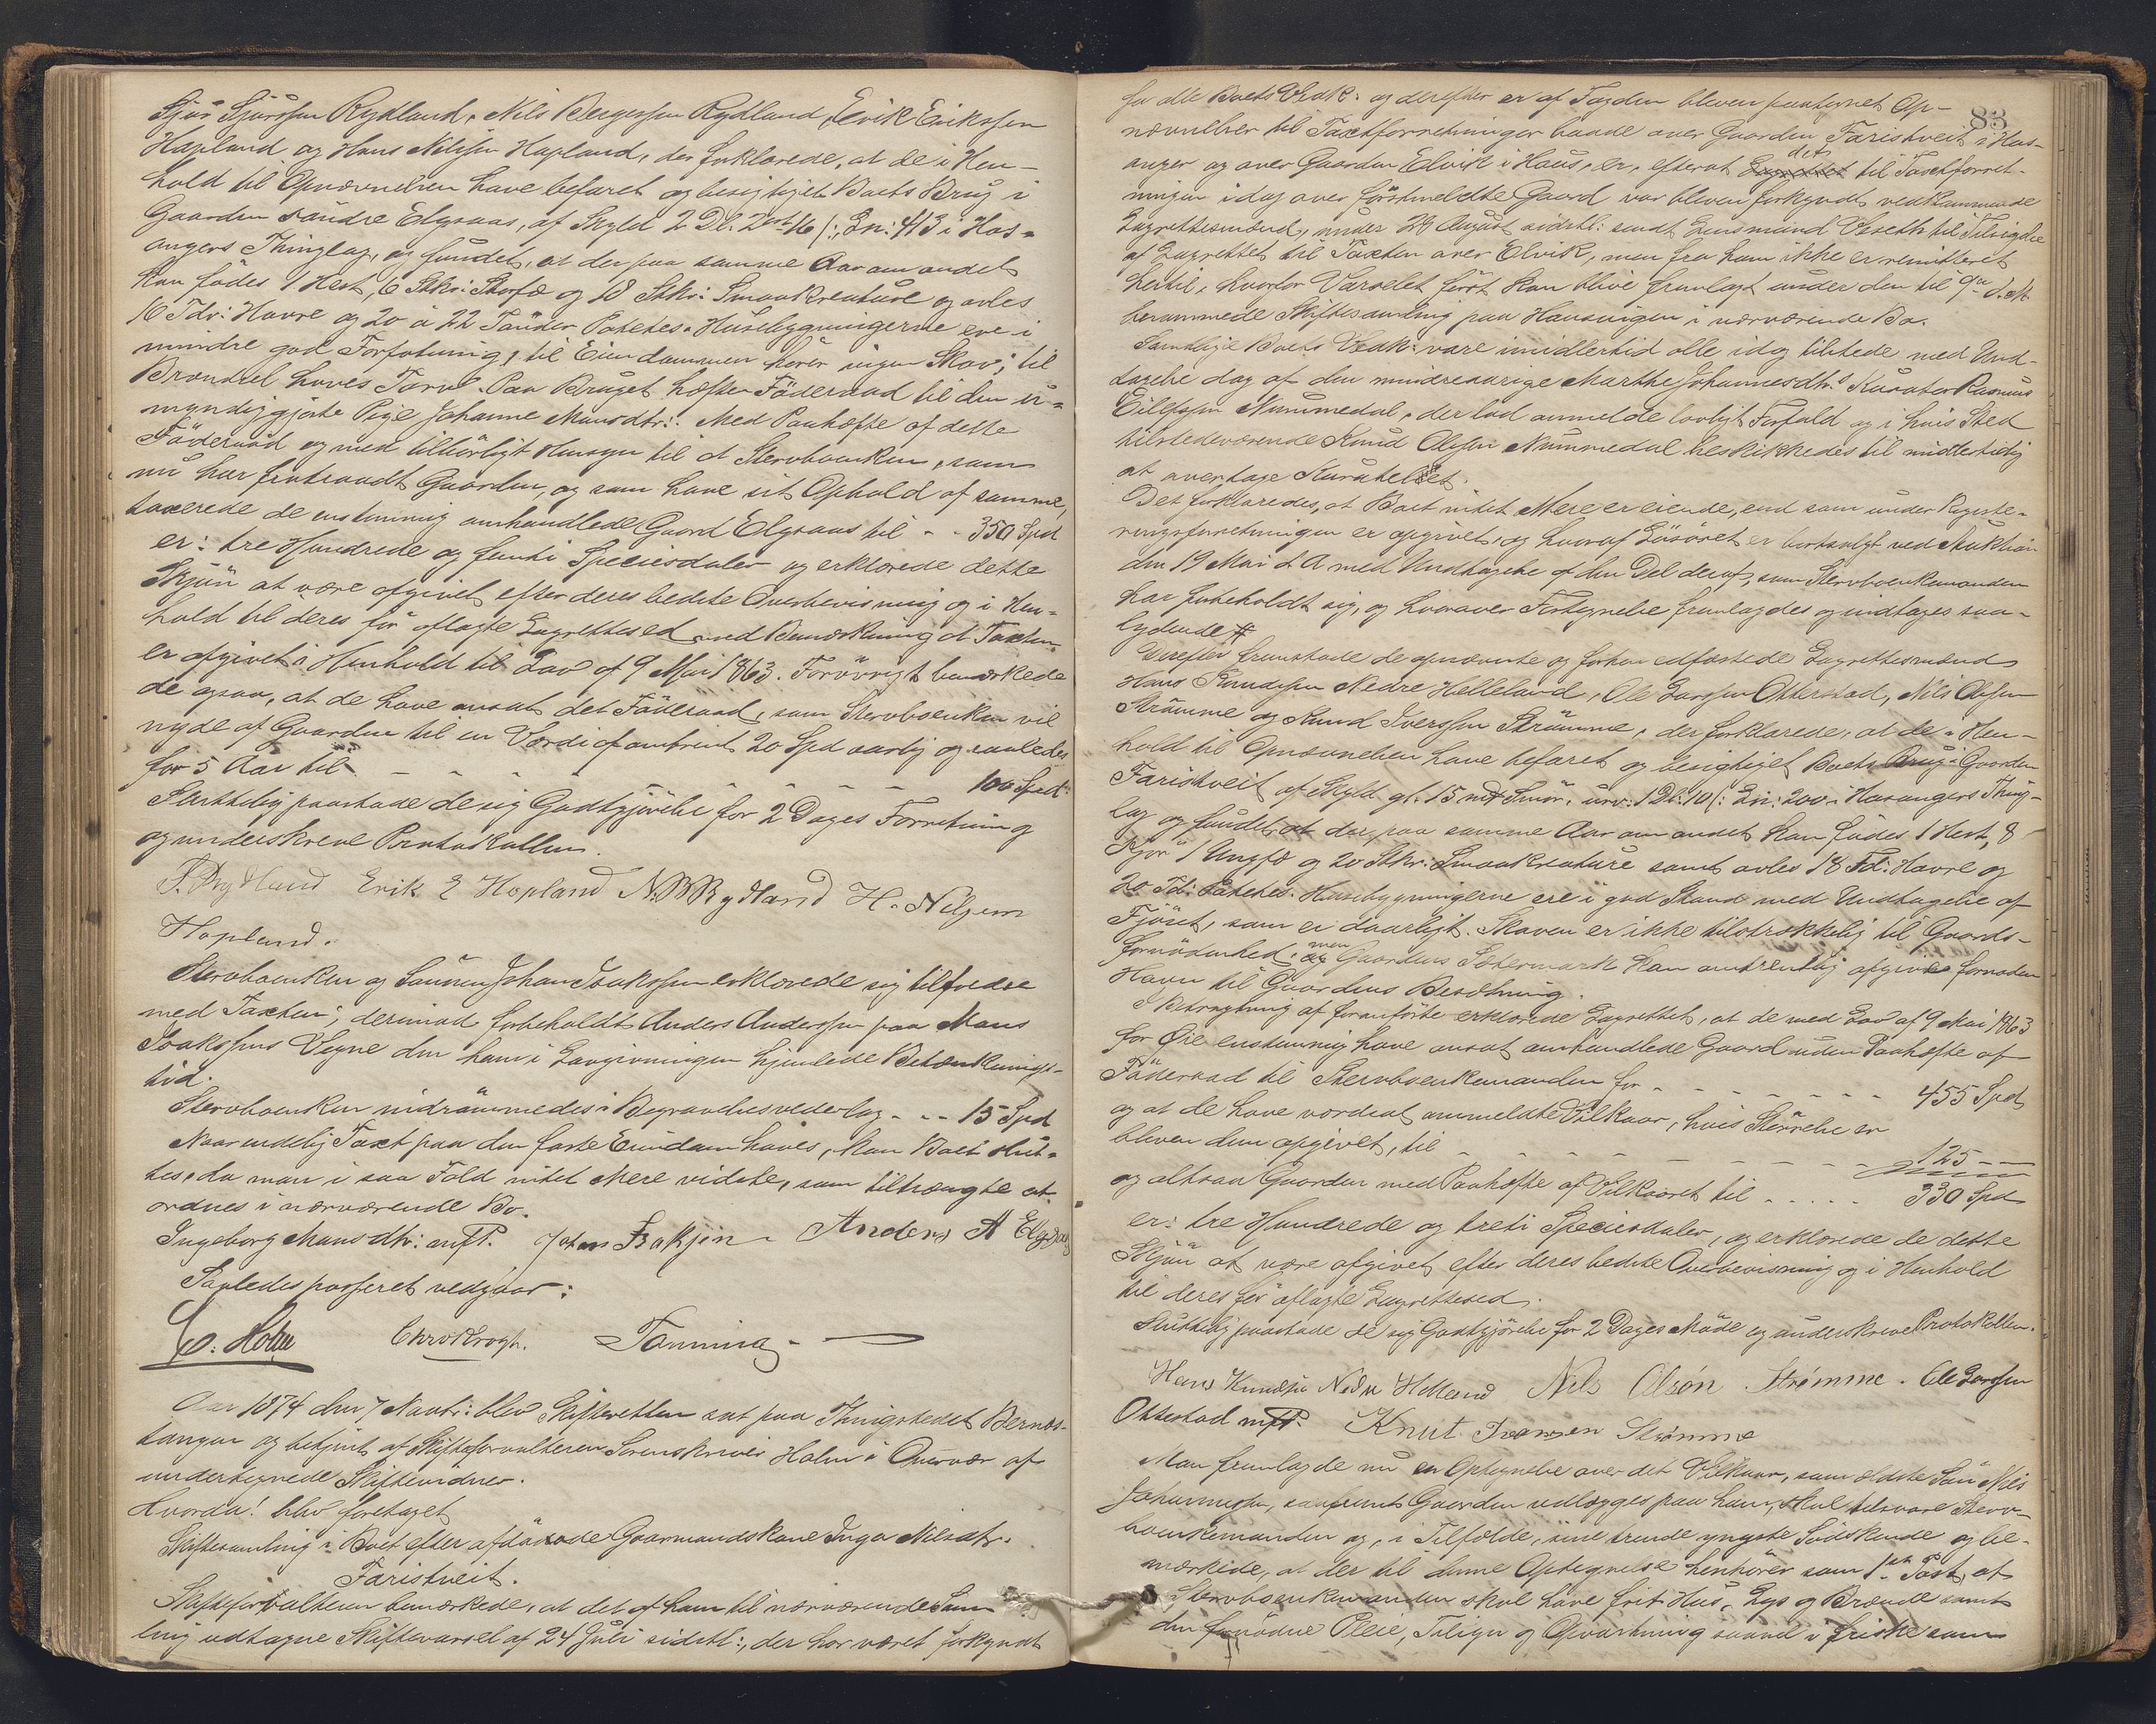 Sjur Sjursen Rydland, Nils Bergessen Rydland, Erik Eriksen
Hopland og Hans Nilssen Hopland, der forklarede, at de i Hen-
hold til Opnævnelsen have befaret og besigtiget Boets Brug i
Gaarden søndre Elgsaas, af Skyld 2 Dl. 2 ort 16 /: Ln: 413 i Hos-
angers Thinglag, og fundet, at der paa samme Aar om andet
kan fødes 1 Hest, 6 Stkr: Storfæ og 18 Stkr: Smaakreature og avles
16 Tdr: Havre og 20 a 22 Tønder Potetes. Husebygningerne ere i
mindre god Forfatning; til Eiendommen hører ingen Skov; til
Brændsel haves Torv. Paa Bruget hefter Føderaad til den u-
myndiggjorte Pige Johanne Mansdtr:. Med Paahefte af dette
Føderaad og med tilbørligt Hensyn til at Stervboenken, som
nu har frasaadt Gaarden, og som have sit Ophold af samme,
taxerede de enstemmig omhandlede Gaard Elgsaas til - - 350 Spd
er: tre Hundrede og femti Speciesdaler og erklærede dette
Skjøn at være afgivet efter deres bedste Overbevisning og i Hen-
hold til deres før aflagte Lagrettesed med Bemærkning at Taxten
er afgivet i Henhold til Lov af 9 Mai 1863. Forøvrigt bemærkede
de ogsaa, at de have ansat det Føderaad, som Stervboenken vil
nyde af Gaarden til en Værdi af omtrent 20 Spd aarlig og saaledes
for 5 Aar til - - - - - - - - 100 Spd:
Sluttelig paastode de sig Godtgjørelse for 2 Dages Forretning
og underskreve Protokollen.
S. Rydland Erik E Hopland N. B Rydland H. Nilsen
Hopland.
Stervboenken og Sønnen Johan Isaksen erklærede sig tilfredse
med Taxten; derimod forbeholdt Anders Andersen paa Mons
Isaksens Vegne den ham i Lovgivningen hjemlede Betænknings-
tid.
Stervboenken indrømmedes i Begravelsesvederlag - - - 15 Spd
Naar endelig Taxt paa den faste Eiendom haves, kan Boet slut-
tes, da man i saa Fald intet Mere vidste, som tiltrængte at
ordnes i nærværende Bo.
Ingeborg Mansdtr: m f P. Johan Isaksen Anders A Elgsaas
Saaledes passeret vedgaar:
C. Holm Chr Krogh. Tanning
Aar 1874 den 7 Novbr: blev Skifteretten sat paa Thingstedet Bernes-
tangen og betjent af Skifteforvalteren Sorenskriver Holm i Overvær af
undertegnede Skiftevidner.
Hvorda! blev foretaget
Skiftesamling i Boet efter afdøde Gaarmandskone Inga Nilsdtr.
Faristveit.
Skifteforvalteren bemærkede, at det af ham til nærværende Sam-
ling udtagne Skiftevarsel af 24 Juli sidstl:, der har været forkyndt
83
for alle Boets Vedk: og derefter er af Fogden bleven paategnet Op-
nævnelser til Taxtforretninger baade over Gaarden Faristveit i Hos-
anger og over Gaarden Elvik i Haus, er, efterat det til Taxtforret-
ningen idag over førstmeldte Gaard var bleven forkyndt vedkommende
Lagrettesmænd, under 26 August sidstl: sendt Lensmand Vaseth til Tilsigelse
af Lagrettet til Taxten over Elvik, men fra ham ikke er remitteret
hertil, hvorfor Varselet først kan blive fremlagt under den til 9de d. M.
berammede Skiftesamling paa Hausvigen i nærværende Bo.
Samtlige Boets Vedk: vare imidlertid alle idag tilstede med Und-
tagelse dog af den mindreaarige Marthe Johannesdtr's Kurator Rasmus
Eilifsen Nummedal, der lod anmelde lovligt Forfald og i hvis Sted
tilstedeværende Knud Olsen Nummedal beskikkedes til midlertidig
at overtage Kuratelet.
Det forklaredes, at Boet intet Mere er eiende, end som under Registe-
ringsforretningen er opgivet, og hvoraf Løsøret er bortsolgt ved Auktion
den 19 Mai d A med Undtagelse af den Del deraf, som Stervboenkemanden
har forbeholdt sig, og hvorover Fortegnelse fremlagdes og indtages saa-
lydende #
Derefter fremstode de opnævnte og forhen edfæstede Lagrettesmænd
Hans Knudsen Nedre Helleland, Ole Larsen Otterstad, Nils Olsen
Strømme og Knud Iversen Strømme, der forklarede, at de i Hen-
hold til Opnævnelsen have befaret og besigtiget Boets Brug i Gaarden
Faristveit af Skyld gl. 15 mk Smør, urv: 1 Dl: 10 /: Ln: 200 i Hosangers Thing-
lag og fundet, at der paa samme Aar om andet kan fødes 1 Hest, 8
Kjør, 1 Ungfæ og 20 Stkr: Smaakreature samt avles 18 Td: Havre og
20 Td: Potetes. Husebygningerne ere i god Stand med Undtagelse af
Fjøset, som er daarligt. Skoven er ikke tilstrækkelig til Gaards-
fornødenhed, men Gaardens Sætermark kan omtrentlig afgive fornøden
Havn til Gaardens Besætning.
I Betragtning af foranførte erklærede Lagrettet, at de med Lov af 9 Mai 1863
for Øie enstemmig have ansat omhandlede Gaard uden Paahefte af
Føderaad til Stervboenkemanden for - - - - - - 455 Spd
og at de have værdsat anmeldte Vilkaar, hvis Størrelse er
bleven dem opgivet, til - - - - - - - - - 125 - -
og altsaa Gaarden med Paahefte af Vilkaaret til - - - - - 330 Spd
er: tre Hundrede og treti Speciesdaler, og erklærede de dette
Skjøn at være afgivet efter deres bedste Overbevisning og i Henhold
til deres før aflagte Lagrettesed.
Sluttelig paastode de sig Godtgjørelse for 2 Dages Møde og underskreve Protokollen.
Hans Knudsen Nedre Helland Nils Olsón Strömme. Ole Larssen
Otterstad m f P. Knut Iversen Strömme
Man fremlagde nu en Optegnelse over det Vilkaar, som ældste Søn Nils
Johannesen, saafremt Gaarden udlægges paa ham, skal tilsvare Sterv-
boenkemanden og, i Tilfælde, sine trende yngste Sødskende og be-
mærkede, at der til denne Optegnelse henhører som 1ste Post, at
Stervboenkemanden skal have frit Hus, Lys og Brænde samt
den fornødne Pleie, Tilsyn og Opvartning saavel i friske som